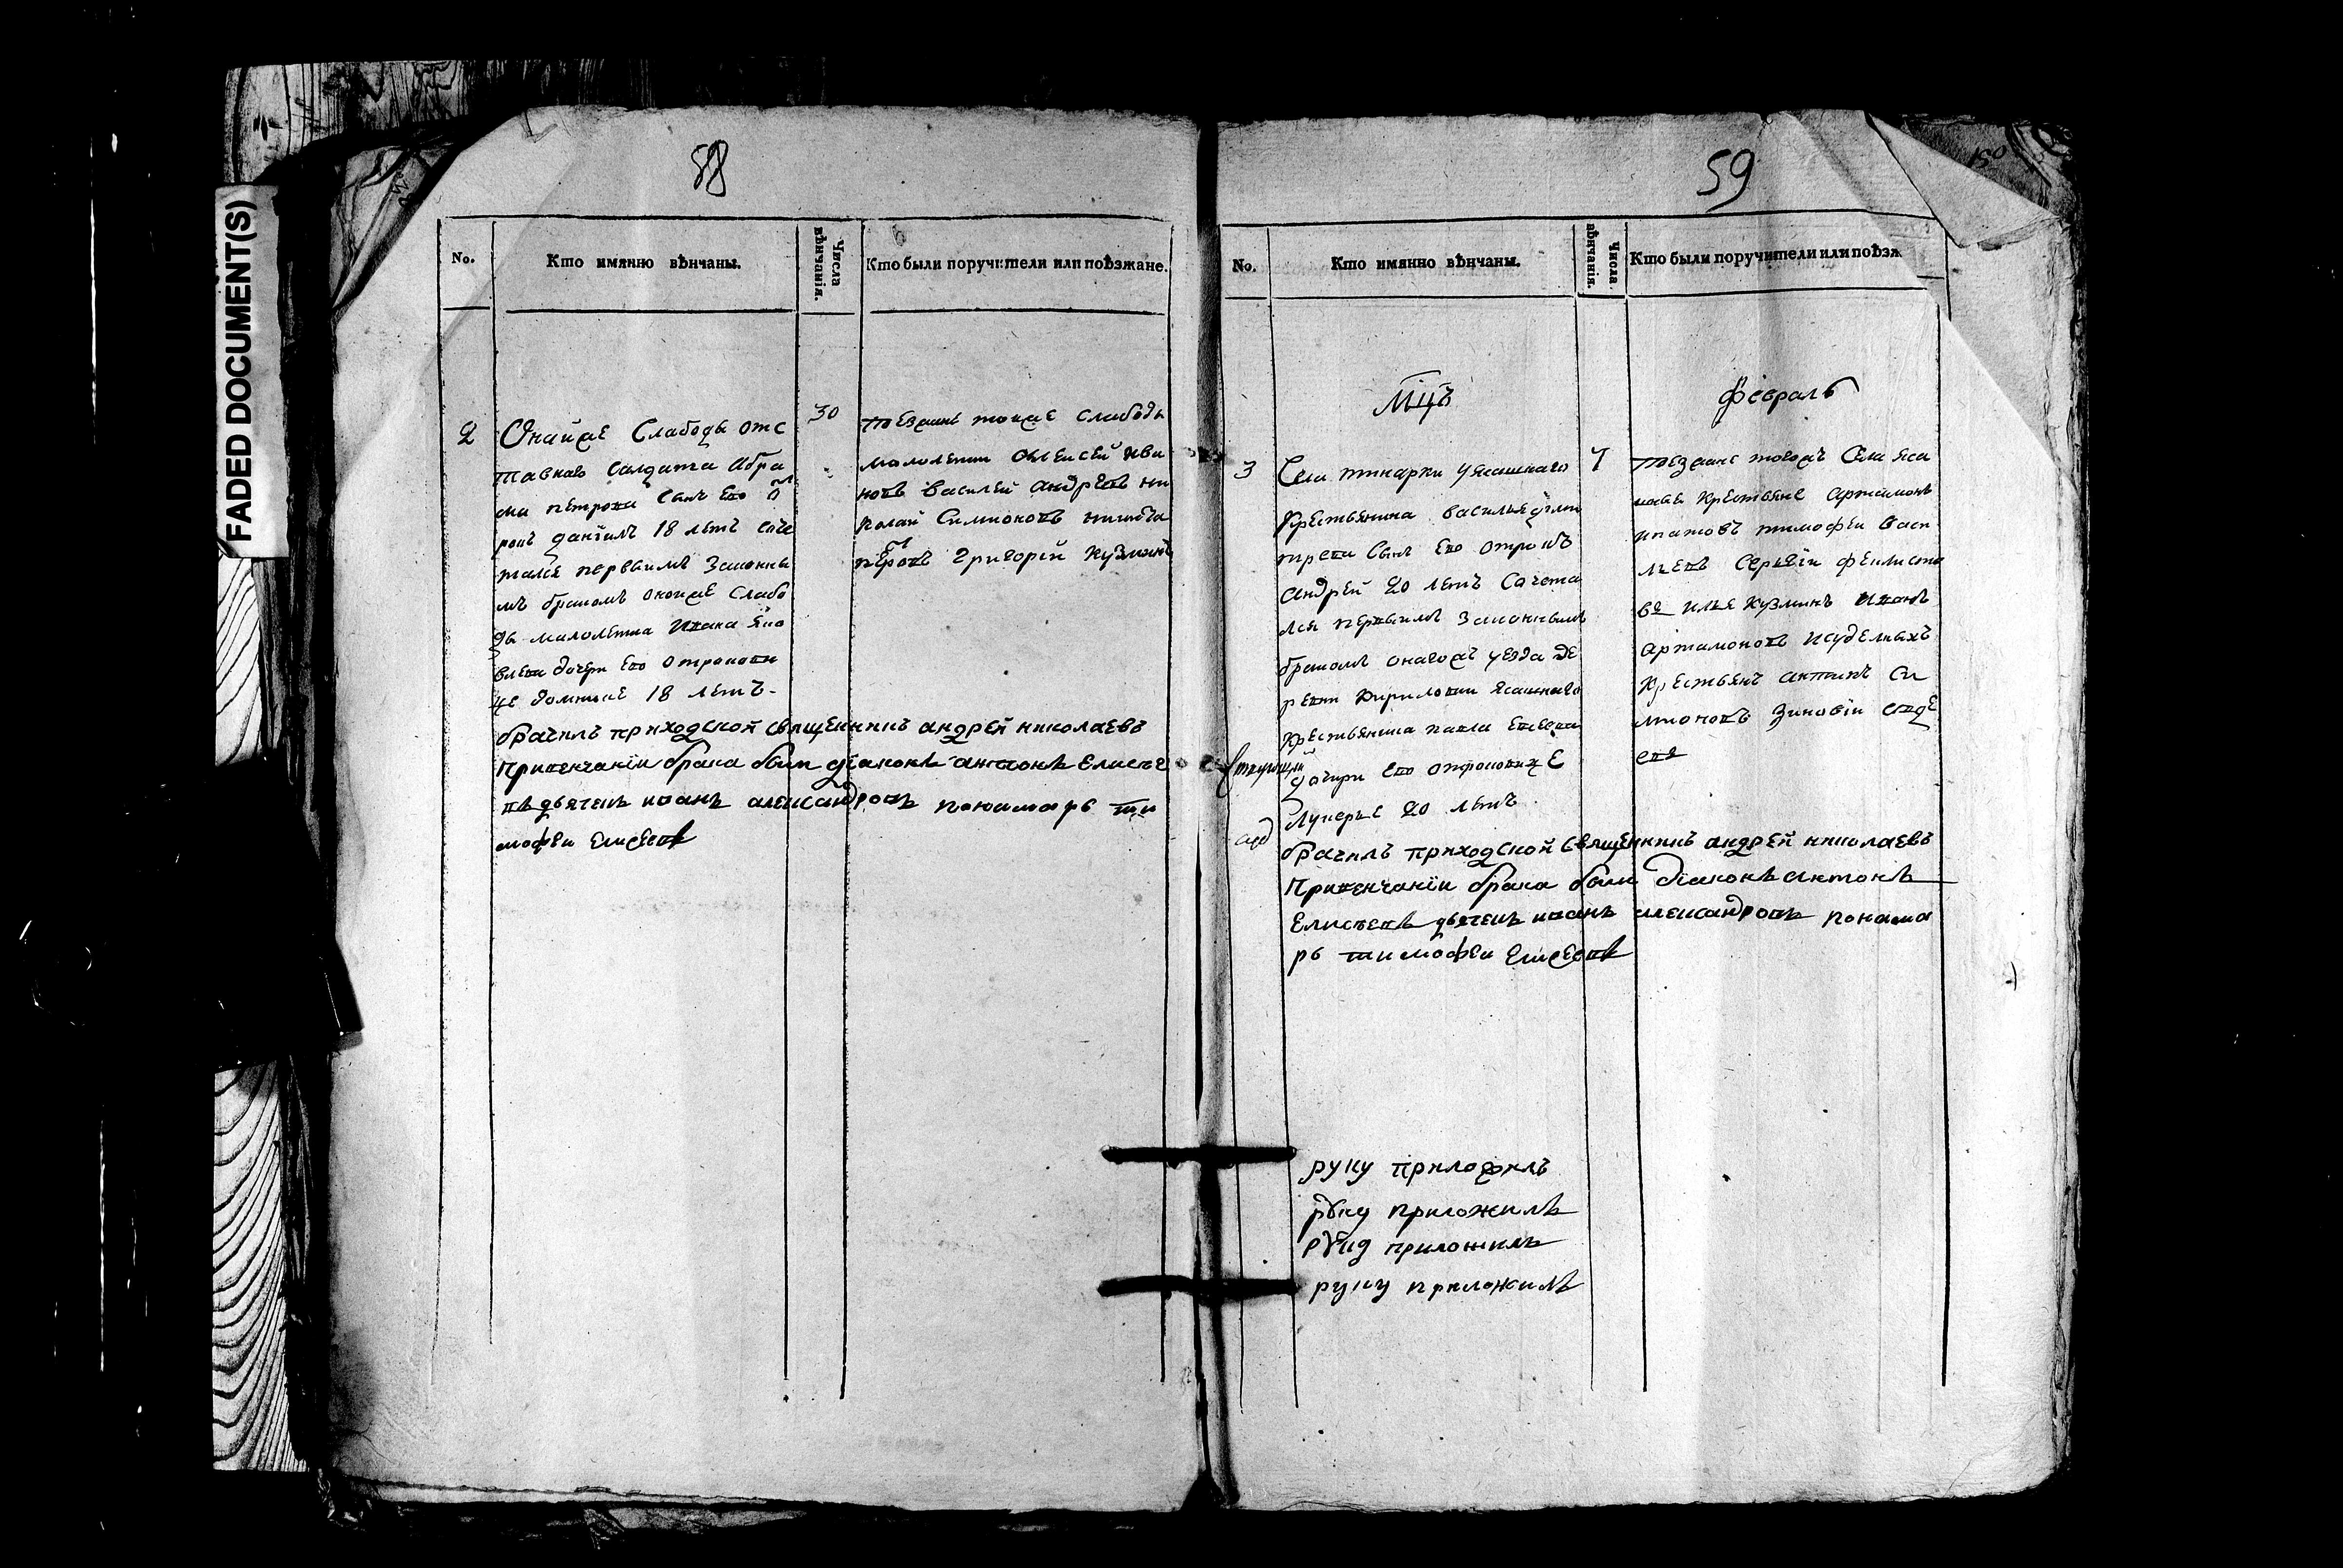 FADED DOCUMENT(S)
58
No.
Кто имянно вѣнчаны.
Числа вѣнчанія.
Кто были поручители или поѣзжане.
2
Онайже Слабоды отс
тавнаго салдата Абра
ма петрова сынъ Его о
рокъ данiилъ 18 летъ соче
тался первымъ Законны
мъ бракомъ онойже Слабо
ды малолетка Ивана Яко
влева дочери Его отрокови
це домникѣ 18 летъ.
30
поезжане тоиже слабоды
малолетки Алексѣй Ива
новъ василей андреевъ ни
колай Симионовъ никифа
перовъ Григорей Кузминъ
брачилъ приходской священникъ андрей николаевъ
Привенчанiи брака были дiаконъ антонъ Елисѣе
въ дьячекъ иванъ александровъ понамарь ти
мофеи Елисеевъ
59
150
No.
Кто имянно вѣнчаны.
Числа вѣнчанія.
Кто были поручители или поѣзж
Мцъ
февраль
3
Села тинарки уясашнаго
крестьянина василья дми
трева Сынъ Его отрокъ
андрей 20 летъ Сочета
лся первымъ Законнымъ
бракомъ оногожъ уезда де
ревни Кириловки ясашнаго
крестьянина павла Евсеева
дочери Его отроковицѣ
Лукерье 20 летъ
7
поезжане тогожъ Села яса
шные крестьяне артамонъ
ипатовъ тимофеи васи
льевъ Сергѣи филисто
въ илья Кузминъ Иванъ
артамоновъ иудельныхъ
крестьянъ антипъ Си
мионовъ Зиновiи
евъ
брачилъ приходской священникъ андрей николаевъ
Привенчанiи брака были дiаконъ антонъ
Елисѣевъ дьячекъ иванъ александровъ понама
рь тимофеи Елисеевъ
руку приложилъ
руку приложилъ
руку приложилъ
руку приложилъ